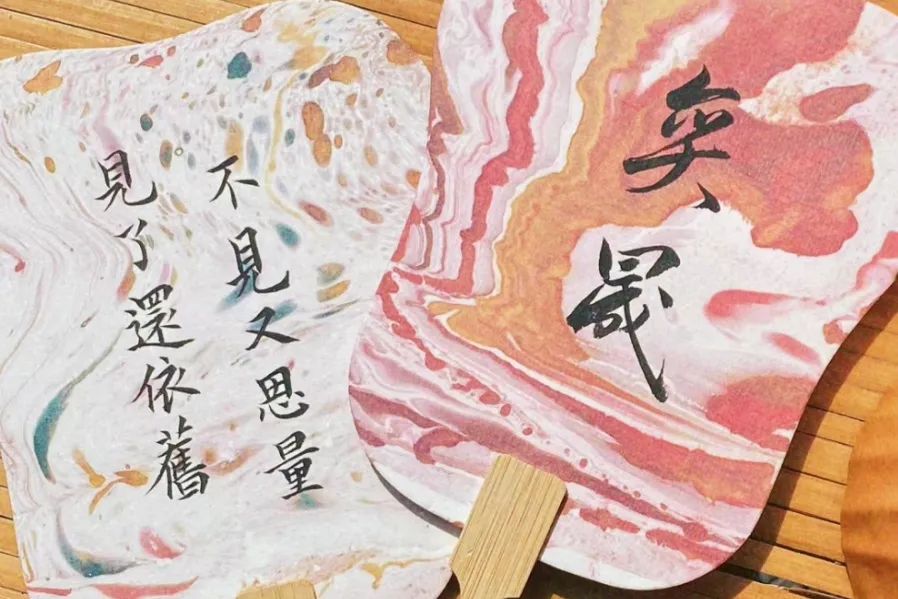 不見又思量
見了還依舊
奕晟